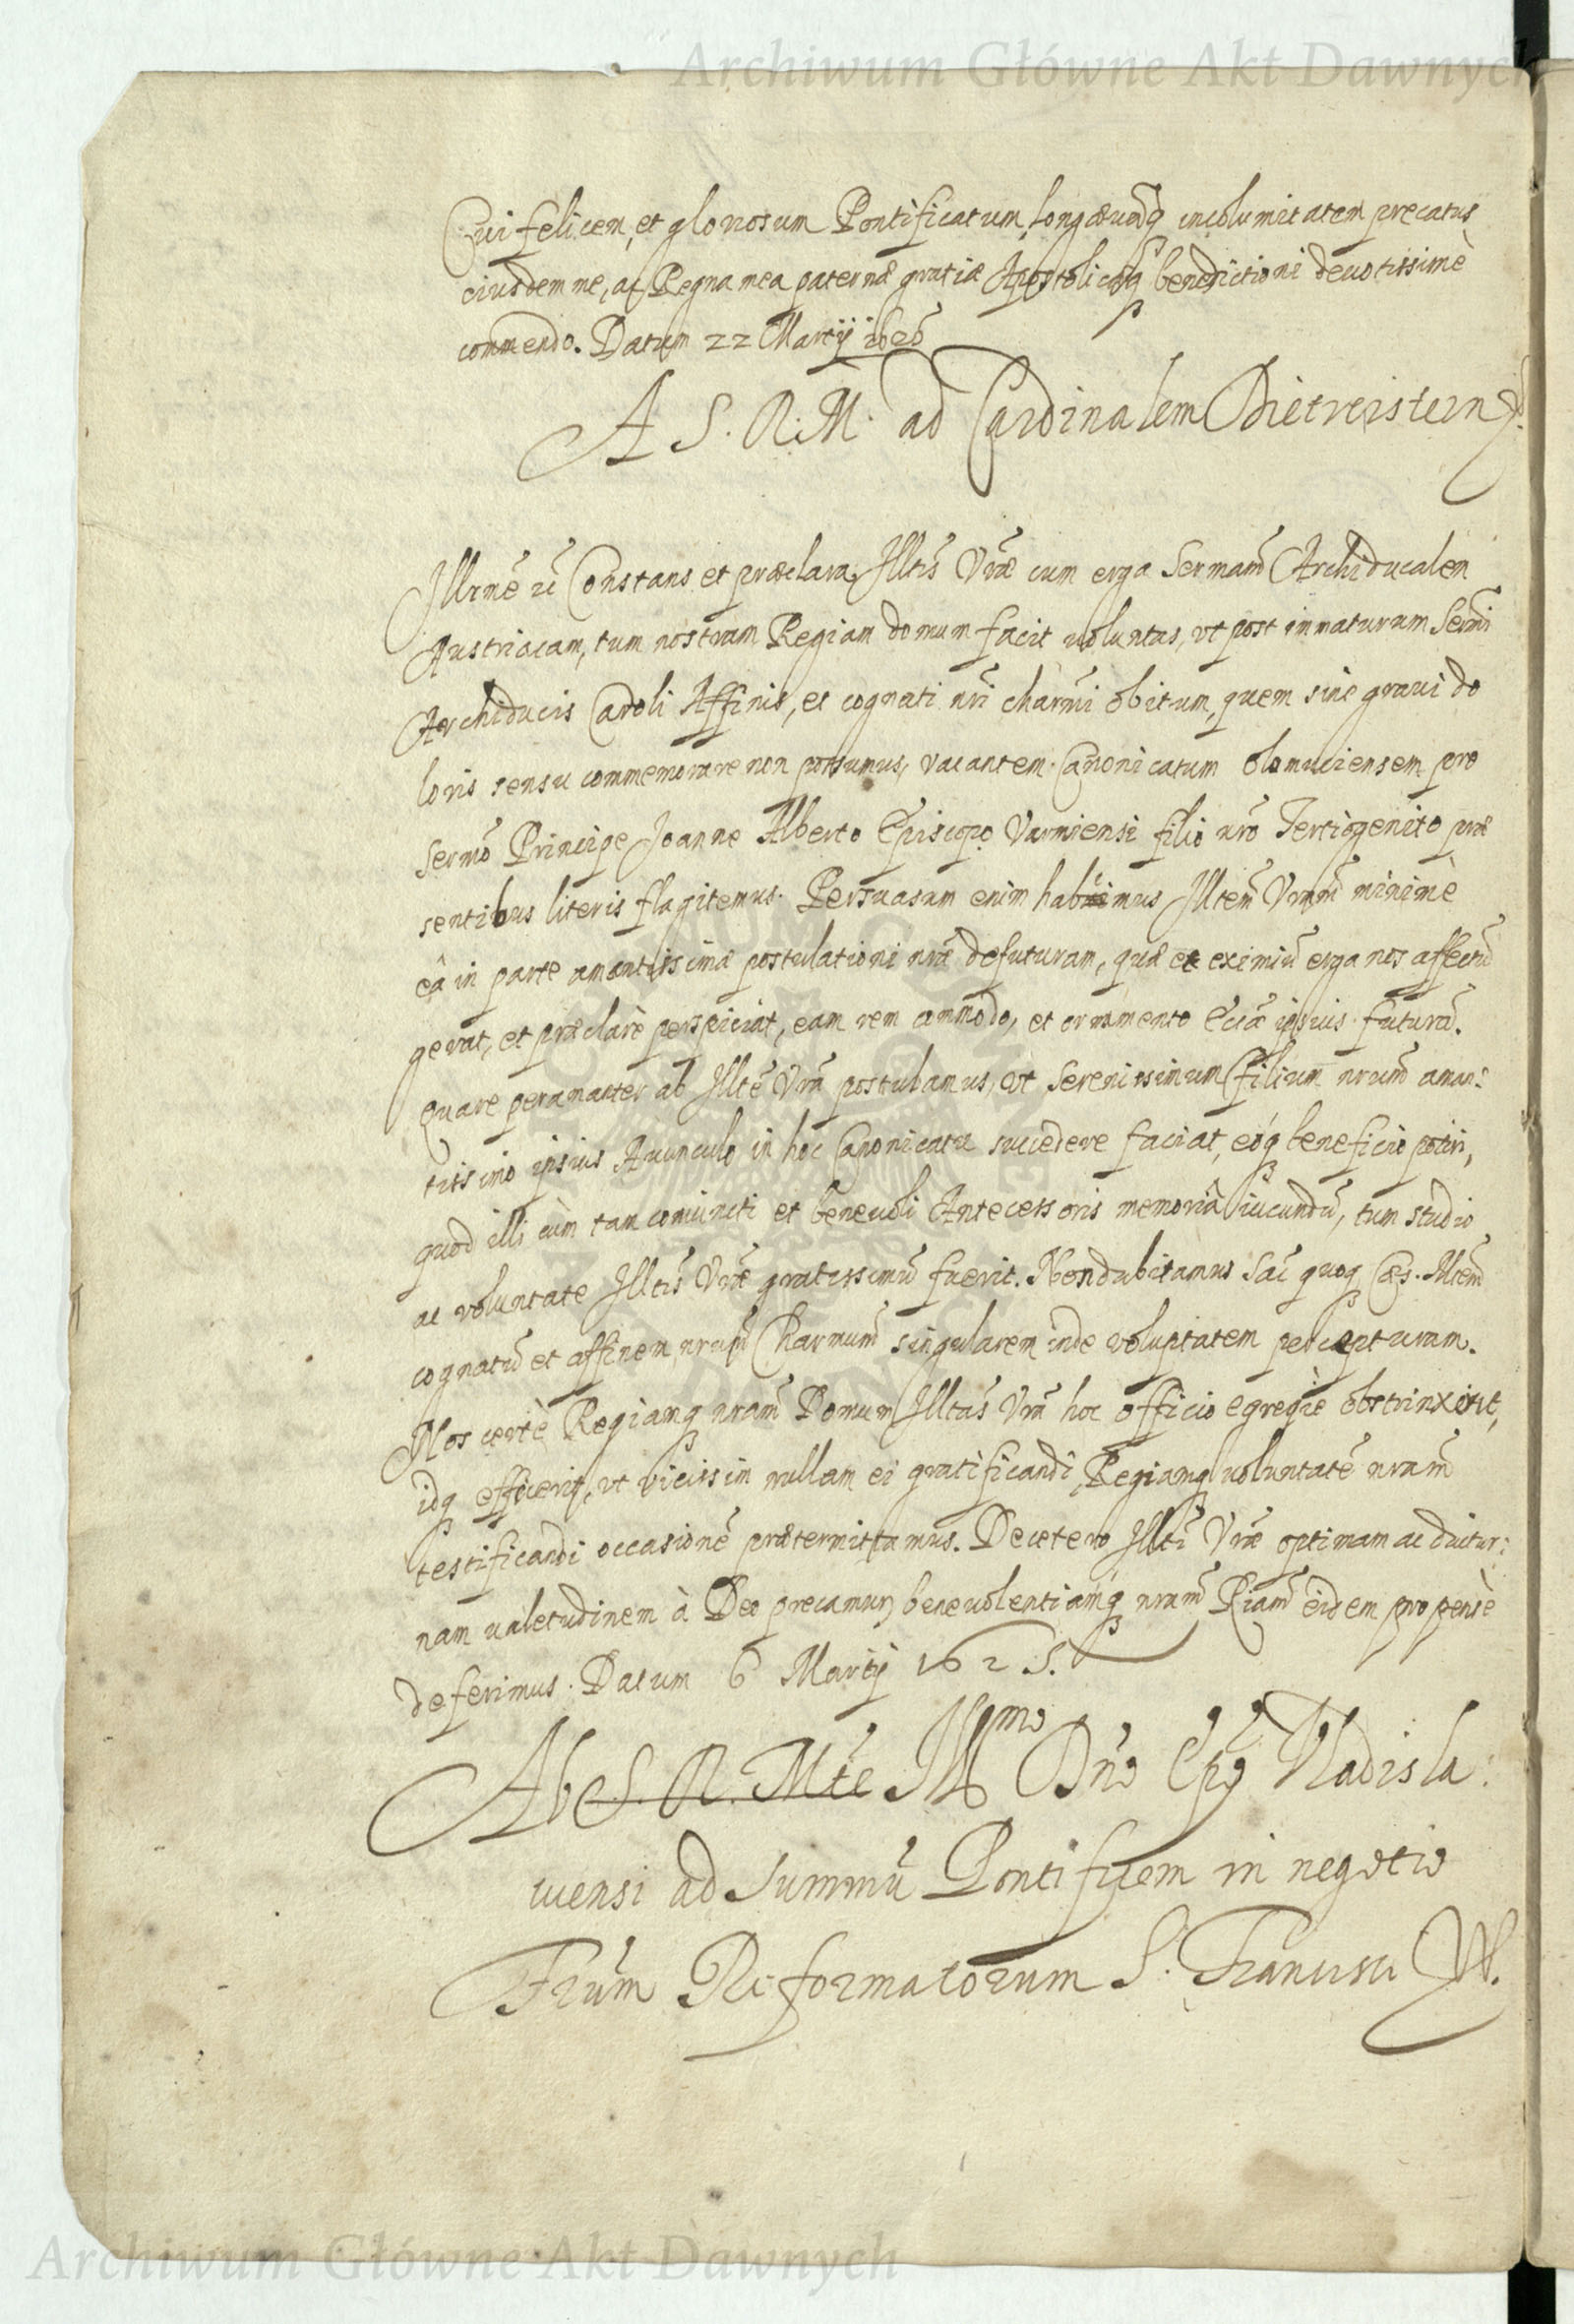 Archiwum Główne Akt Dawnych
Cui felicem, et gloriosum Pontificatum, longæuamq́ incolumitatem precatus,
eiusdem me, ac Regna mea paternæ gratiæ Apostolicæq́ benedictioni deuotissimè
commendo. Datum 22 Martij 1625
A S. R. M. ad Cardinalem Dietreistein
Illrme͂ ꝛc͂ Constans et præclara Illtis͂ Vræ͂ cum erga Sermam͂ Archiducalem
Austriacam, tum nostram Regiam domum facit voluntas, vt post immaturum Sermi͂
Archiducis Caroli Affinis, et cognati nri͂ charmi͂ obitum, quem sine graui do
loris sensu commemorare non possumus, vacantem Canonicatum olomuciensem pro
Sermo͂ Principe Joanne Alberto Episcopo Varmiensi filio nro͂ Tertiogenito præ
sentibus literis flagitemus. Persuasum enim habemus Illtem͂ Vram͂ minimè
eâ in parte amantissimæ postulationi nræ͂ defuturam, quæ et eximiu͂ erga nos affectu͂
gerat, et præclarè perspiciat, eam rem commodo, et ornamento Eccæ͂ ipsius futura͂.
Quare peramanter ab Illte͂ Vra͂ postulamus, vt Serenissimum filium nrum͂ aman:
tissimo ipsius Auunculo in hoc Canonicatu succedere faciat, eóq́ beneficio potiri,
quod illi cùm tam coniuncti et beneuoli Antecessoris memoriâ iucundu͂, tum studio
ac voluntate Illtis͂ Vræ͂ gratissimu͂ fuerit. Non dubitamus Sac͂ quoq́ Cæs. Mtem͂
cognatu͂ et affinem nrum͂ Charmum͂ singularem inde voluptatem percepturam.
Nos certè Regiamq́ nram͂ Domum Illtas͂ Vra͂ hoc officio egregiè obstrinxerit,
idq́ effecerit, vt vicissim nullam ei gratificandi, Regiamq́ uoluntate͂ nram͂
testificandi occasione͂ prætermittamus. De cetero Illti͂ Vræ͂ optimam ac diutur:
nam ualetudinem à Deo precamur, beneuolentiamq́ nram͂ Riam͂ eidem propensè
deferimus. Datum 6 Martij 1625.
Ab S. R. Mte Illmo Dno͂ Epo͂ Vladisla:
uiensi ad Summu͂ Pontificem in negotio
Frum͂ Reformatorum S. Francisci
Archiwum Główne Akt Dawnych